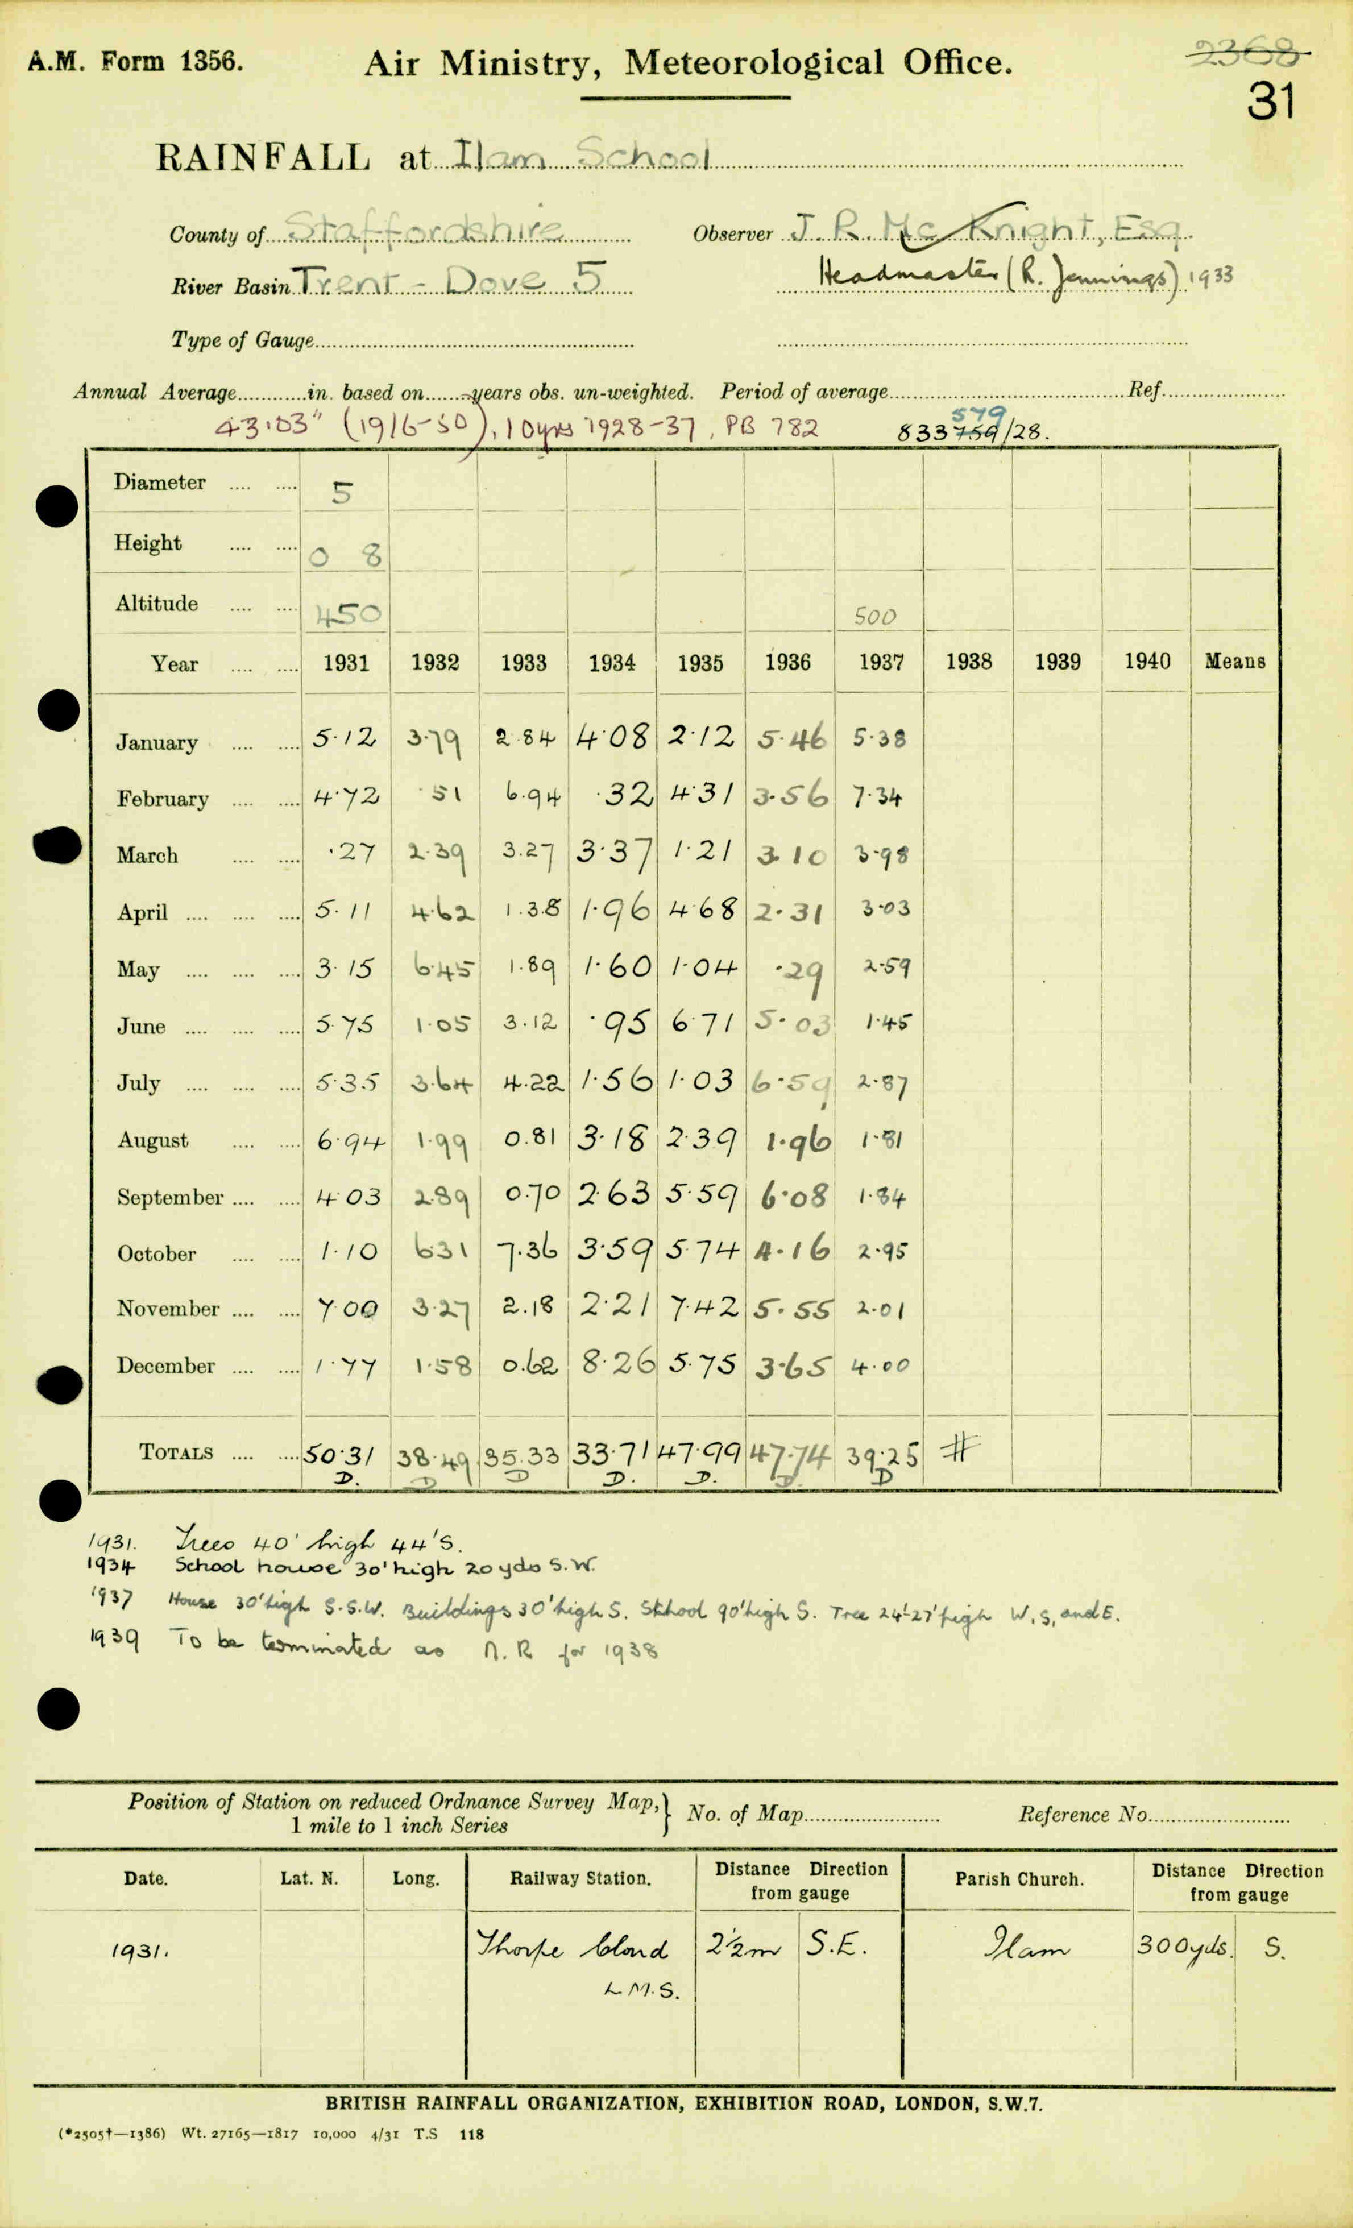 A.M. Form 1356. Air Ministry, Meteorological Office. 2368
31
RAINFALL at Ilam School
County of Staffordshire Observer J. R. Mc Knight, Esq.
River Basin Trent - Dove 5 Headmaster (R. Jennings) 1933
Type of Gauge
Annual Average in. based on years obs. un-weighted. Period of average Ref.
43.03" (1916-50), 10 yrs 1928-37, PB 782 833 759/28. 579
Diameter 5
Height 0 8
Altitude 450 500
Year 1931 1932 1933 1934 1935 1936 1937 1938 1939 1940 Means
January 5.12 3.79 2.84 4.08 2.12 5.46 5.38
February 4.72 .51 6.94 .32 4.31 3.56 7.34
March .27 2.39 3.27 3.37 1.21 3.10 3.98
April 5.11 4.62 1.38 1.96 4.68 2.31 3.03
May 3.15 6.45 1.89 1.60 1.04 .29 2.59
June 5.75 1.05 3.12 .95 6.71 5.03 1.45
July 5.35 3.64 4.22 1.56 1.03 6.59 2.87
August 6.94 1.99 0.81 3.18 2.39 1.96 1.81
September 4.03 2.89 0.70 2.63 5.59 6.08 1.84
October 1.10 6.31 7.36 3.59 5.74 4.16 2.95
November 7.00 3.27 2.18 2.21 7.42 5.55 2.01
December 1.77 1.58 0.62 8.26 5.75 3.65 4.00
TOTALS 50.31 38.49 35.33 33.71 47.99 47.74 39.25 #
D. D D D. D. D. D
1931. Trees 40' high 44'S.
1934 School house 30' high 20 yds S.W.
1937 House 30' high S.S.W. Buildings 30' high S. School 90' high S. Tree 24'-27' high W, S, and E.
1939 To be terminated as N.R for 1938
Position of Station on reduced Ordnance Survey Map, } No. of Map Reference No.
1 mile to 1 inch Series
Date. Lat. N. Long. Railway Station. Distance Direction from gauge Parish Church. Distance Direction from gauge
1931. Thorpe Cloud 2½m S.E. Ilam 300yds. S.
L.M.S.
BRITISH RAINFALL ORGANIZATION, EXHIBITION ROAD, LONDON, S.W.7.
(*2505†—1386) Wt. 27165—1817 10,000 4/31 T.S 118